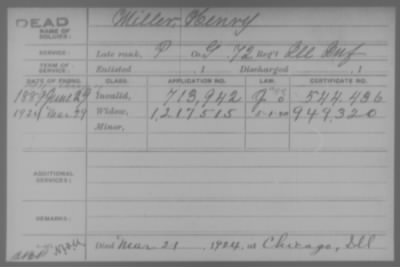 DEAD Miller, Henry
NAME OF SOLDIER:
SERVICE: Late rank, P Co. G, 72 Reg't Ill Inf
TERM OF SERVICE: Enlisted , 1 Discharged , 1
DATE OF FILING. CLASS. APPLICATION NO. CERTIFICATE NO.
1889 June 29 Invalid, 713,942 544.436
1924 Mar 29 Widow, 1217515 949,320
Minor,
ADDITIONAL SERVICES:
REMARKS:
Died Mar 21 1924, at Chicago, Ill